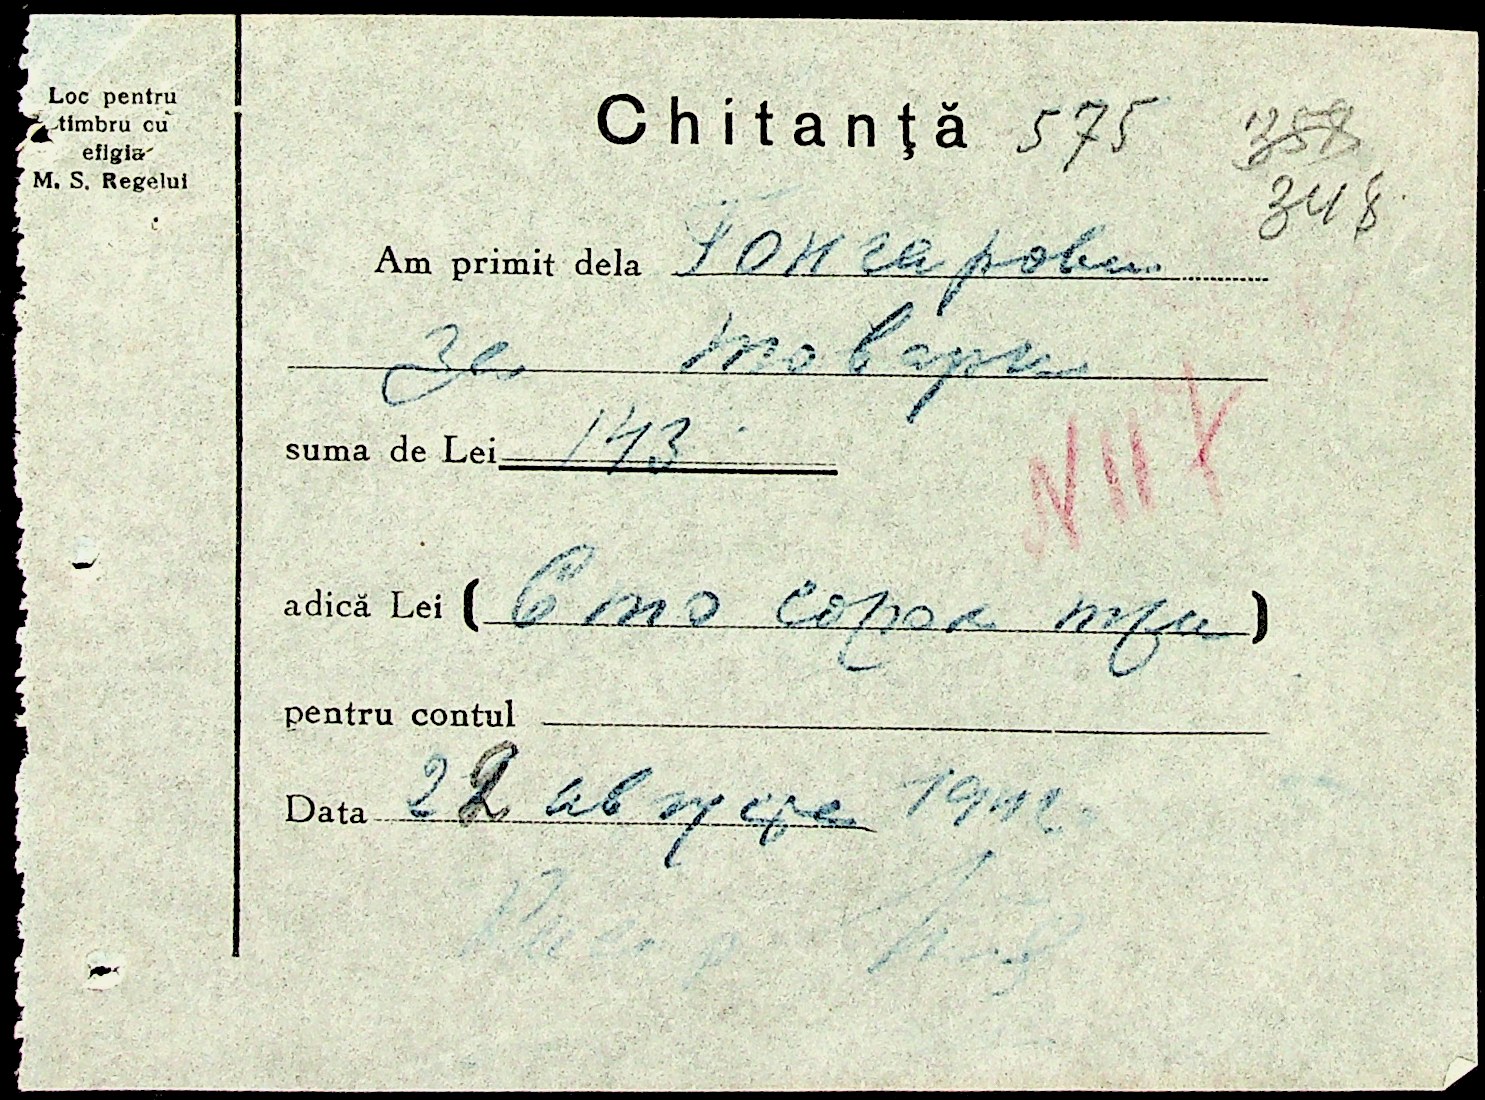 Loc pentru
timbru cu
efigia
M. S. Regelui
Chitanţă 575 358
348
Am primit dela Гончарова
за товары
suma de Lei 143
N 117
adică Lei ( Сто сорок три )
pentru contul
Data 22 августа 1942